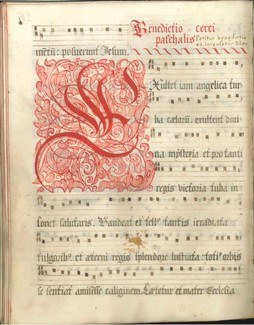 Benedictio cerei
paschalis
metū: posuerunt Jesum.
Xultet iam angelica tur
ba celorū. exultent diui
na mysteria. et pro tanti
regis victoria tuba in
sonet salutaris. Gaudeat et tellꝰ tantis irradiata
fulgoribꝰ. et eterni regis splendore lustrata: totiꝰ orbis
se sentiat amisisse caliginem Letetur et mater Ecclesia